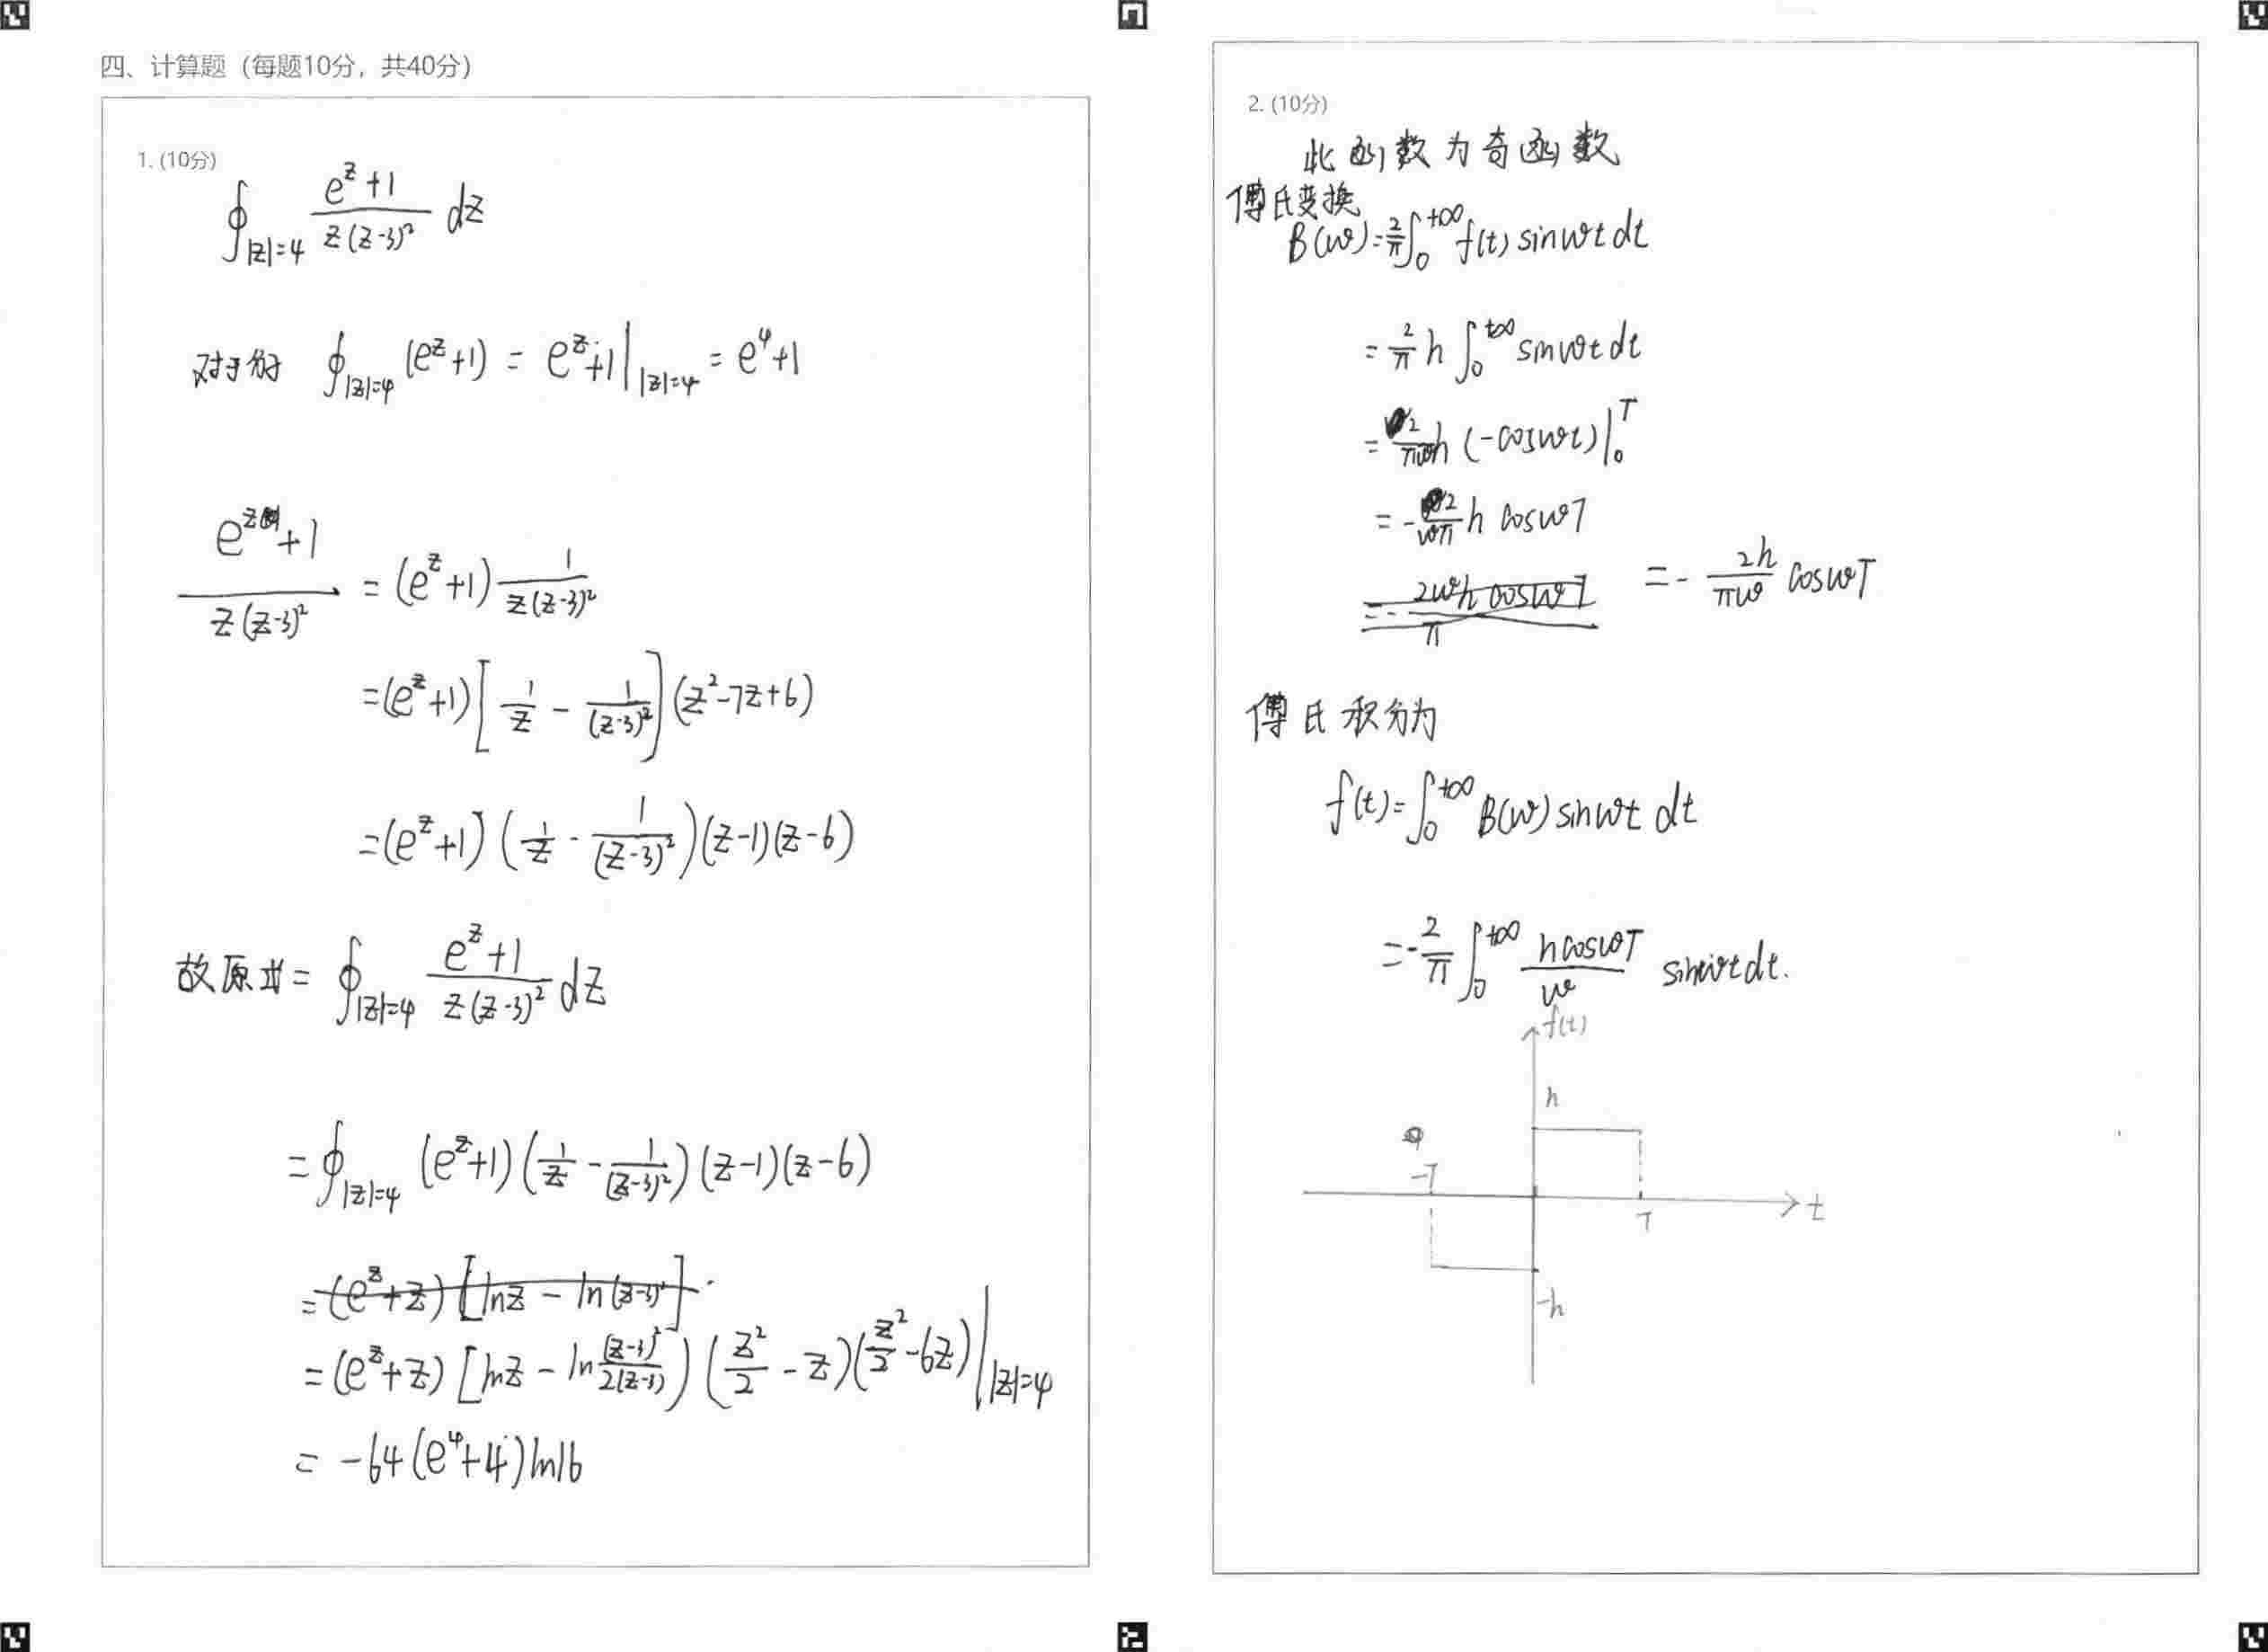 四、计算题（每题10分，共40分）
1. (10分)
∮_{|z|=4} \frac{e^z+1}{z(z-3)^2} dz
对于分子 ∮_{|z|=4} (e^z+1) = e^z+1|_{|z|=4} = e^4+1
\frac{e^z+1}{z(z-3)^2} = (e^z+1) \frac{1}{z(z-3)^2}
=(e^z+1)[\frac{1}{z} - \frac{1}{(z-3)^2}](z^2-7z+6)
=(e^z+1)(\frac{1}{z} - \frac{1}{(z-3)^2})(z-1)(z-6)
故原式= ∮_{|z|=4} \frac{e^z+1}{z(z-3)^2} dz
= ∮_{|z|=4} (e^z+1)(\frac{1}{z} - \frac{1}{(z-3)^2})(z-1)(z-6)
=(e^z+z)[lnz - ln(z-3)^2]
=(e^z+z)[lnz - ln\frac{(z-3)^2}{2(z-3)})(\frac{z^2}{2} - z)(\frac{z^2}{2} - 6z)|_{|z|=4}
= -64(e^4+4)ln16
2. (10分)
此函数为奇函数
傅氏变换
B(w)=\frac{2}{π}∫_0^{+∞} f(t) sinwt dt
= \frac{2}{π} h ∫_0^{+∞} sinwt dt
= \frac{2}{πw}h (-coswt)|_0^T
= -\frac{2}{wπ} h coswT
= -\frac{2wh coswT}{π} = -\frac{2h}{πw} coswT
傅氏积分为
f(t)=∫_0^{+∞} B(w) sinwt dt
= -\frac{2}{π} ∫_0^{+∞} \frac{hcoswT}{w} sinwt dt.
f(t)
h
-T
T
t
-h